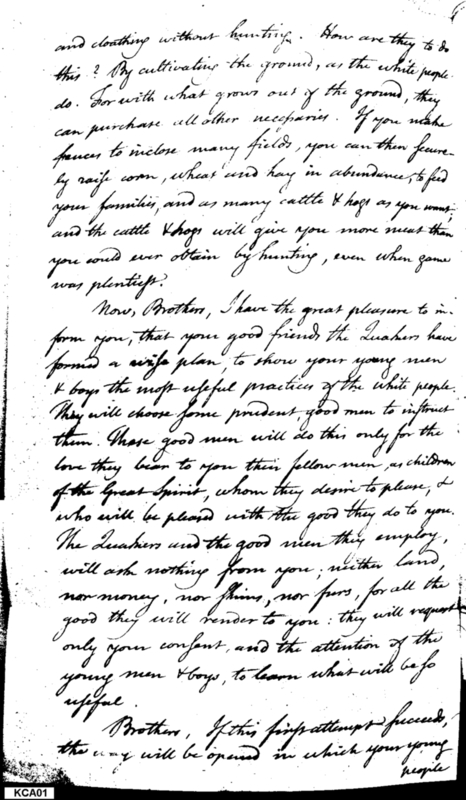 and cloathing without hunting. How are they to do
this? By cultivating the ground, as the white people
do. For with what grows out of the ground, they
can purchase all other necessaries. If you make
fences to inclose many fields, you can then secure-
ly raise corn, wheat and hay in abundance, to feed
your families, and as many cattle & hogs as you want;
and the cattle & hogs will give you more meat than
you could ever obtain by hunting, even when game
was plentiest.
Now, Brothers, I have the great pleasure to in-
form you, that your good friends the Quakers have
formed a wise plan, to show your young men
& boys the most useful practices of the white people.
They will choose some prudent, good men to instruct
them. These good men will do this only for the
love they bear to you their fellow men, as children
of the Great Spirit, whom they desire to please, &
who will be pleased with the good they do to you.
The Quakers and the good men they employ,
will ask nothing from you, neither land,
nor money, nor skins, nor furs, for all the
good they will render to you: they will request
only your consent, and the attention of the
young men & boys, to learn what will be so
useful.
Brothers, If this first attempt succeeds,
the way will be opened in which your young
people
KCA01